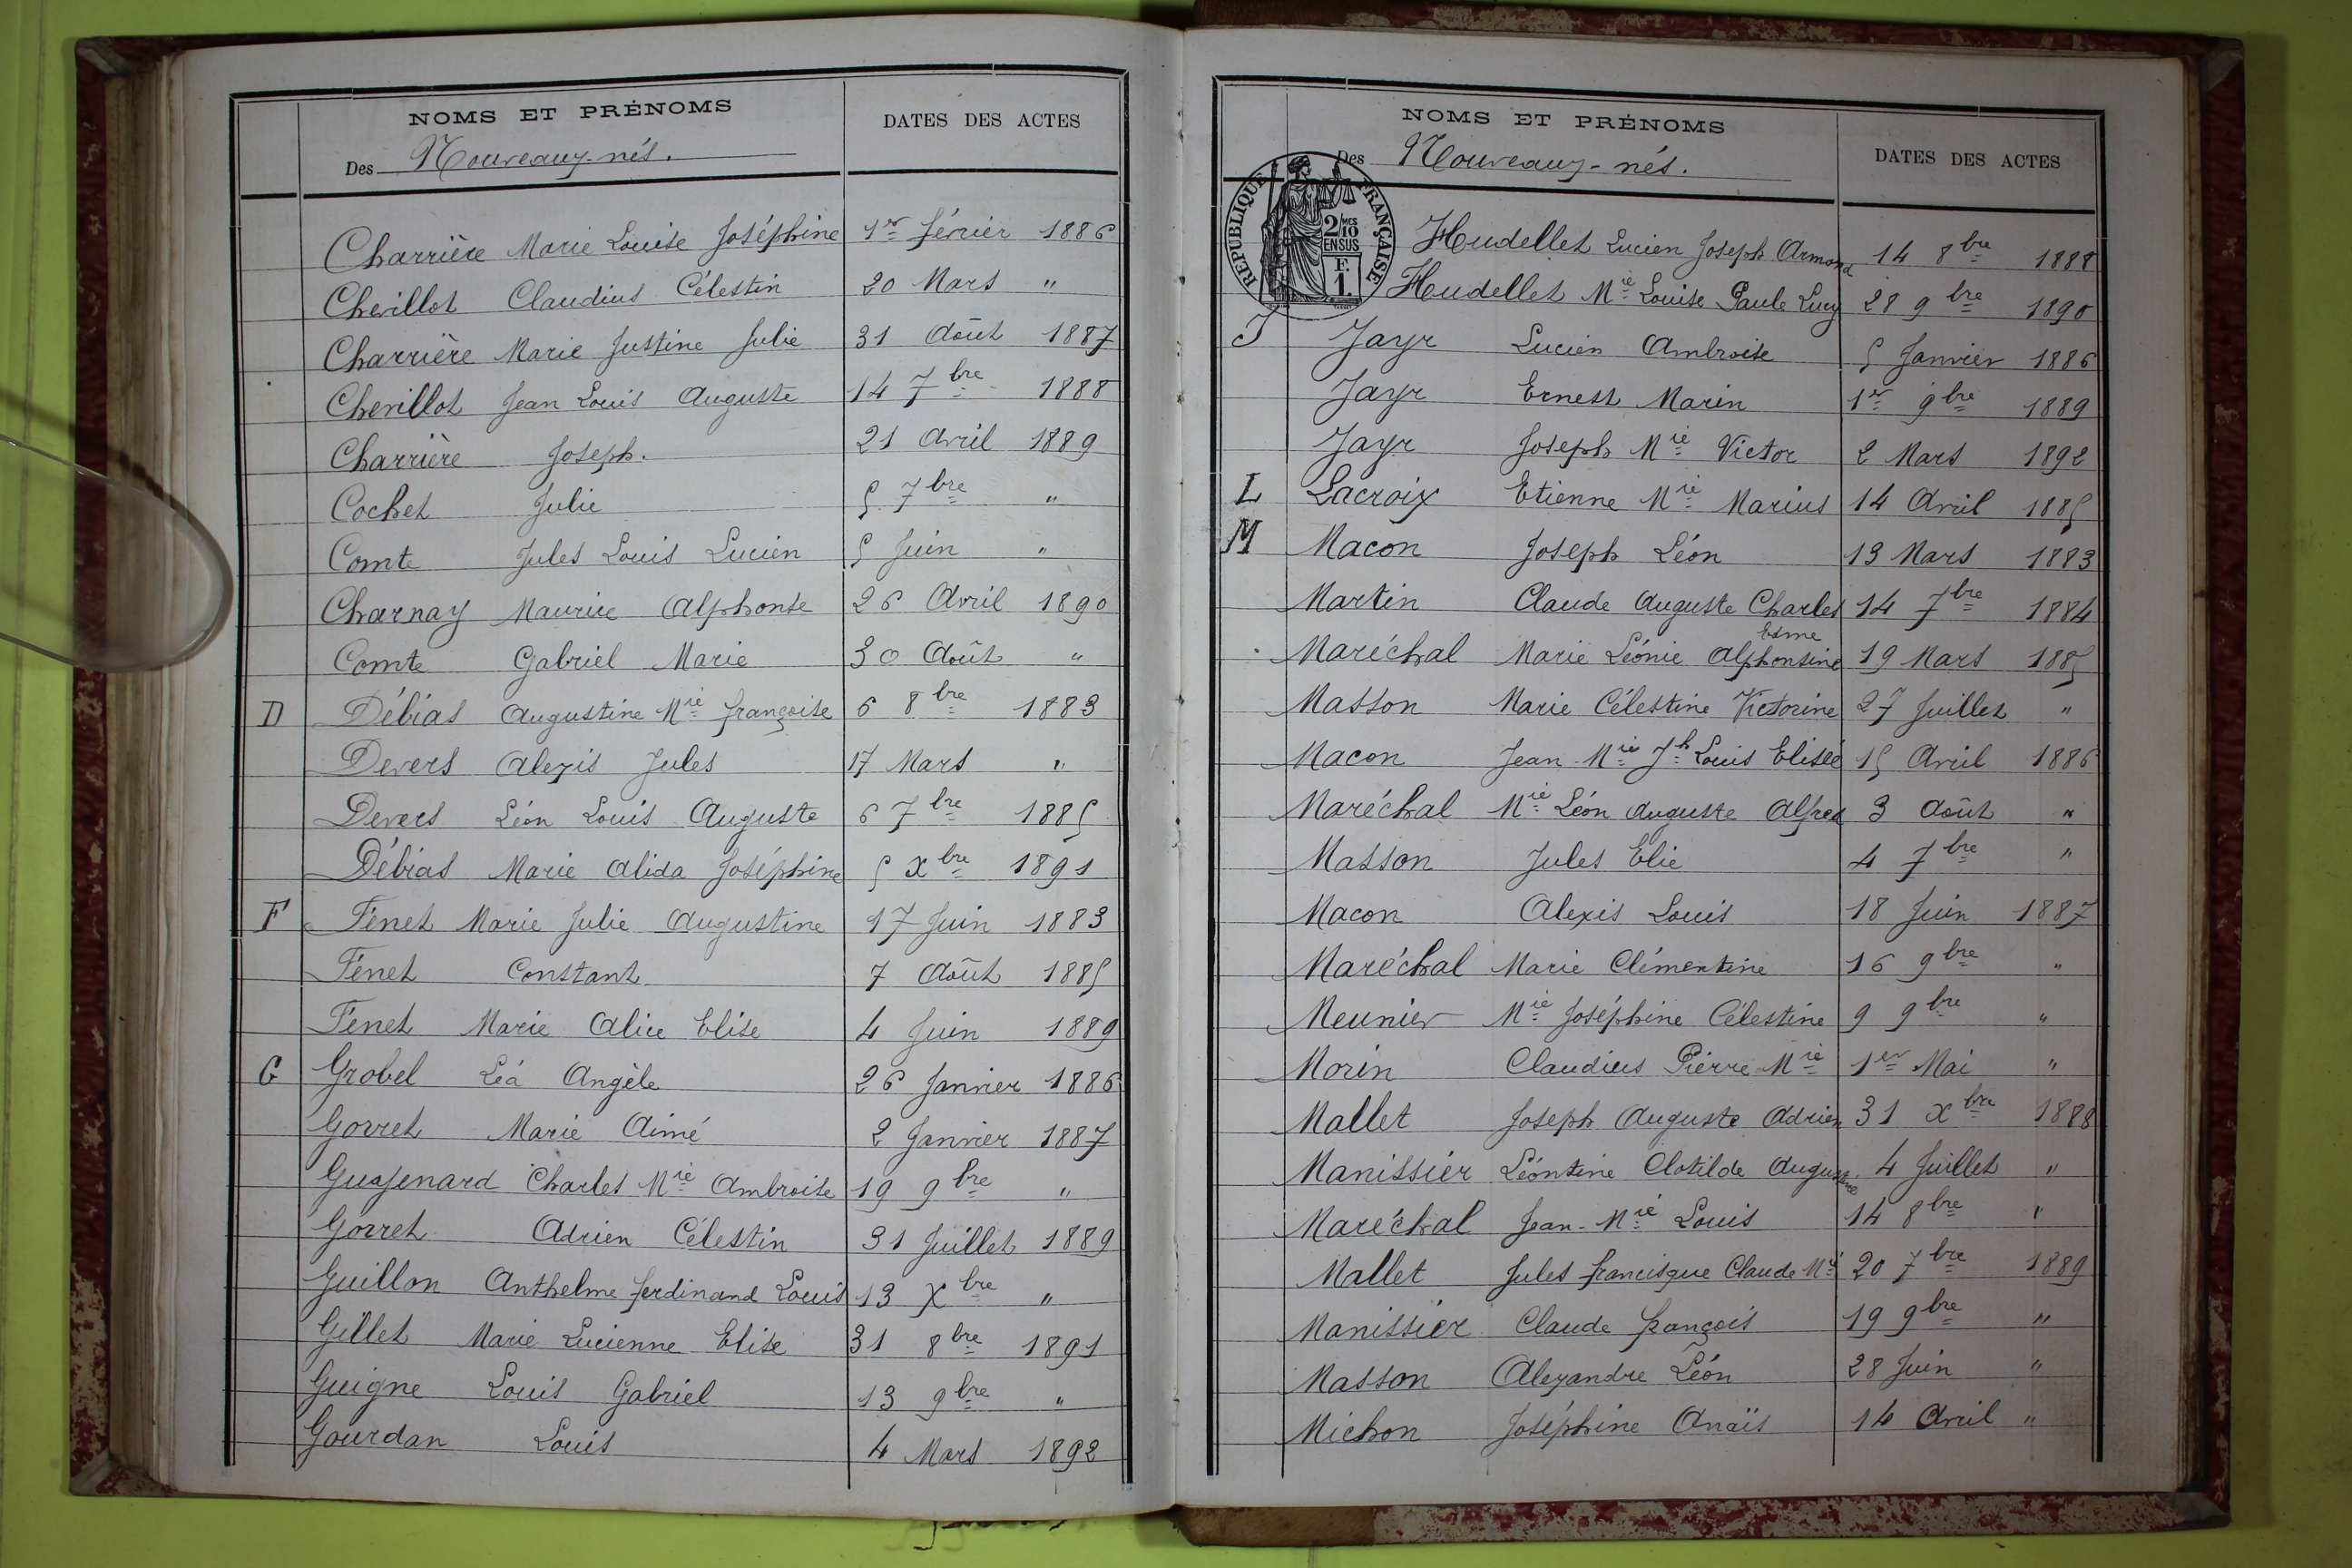 NOMS ET PRÉNOMS
DATES DES ACTES
Des Nouveaux-nés.
Charrière Marie Louise Joséphine 1er février 1886
Chevillot Claudius Célestin 20 Mars "
Charrière Marie Justine Julie 31 Août 1887
Chevillot Jean Louis Auguste 14 7bre 1888
Charrière Joseph. 21 Avril 1889
Cochet Julie 5 7bre "
Comte Jules Louis Lucien 5 Juin "
Charnay Maurice Alphonse 26 Avril 1890
Comte Gabriel Marie 30 Août "
D Débias Augustine Mie françoise 6 8bre 1883
Devers Alexis Jules 17 Mars "
Devers Léon Louis Auguste 6 7bre 1885
Débias Marie Alida Joséphine 5 Xbre 1891
F Fénet Marie Julie Augustine 17 Juin 1883
Fénet Constant 7 Août 1885
Fénet Marie Alice Elise 4 Juin 1889
G Grobel Léa Angèle 26 Janvier 1886
Gorret Marie Aimé 2 Janvier 1887
Charles Mie Ambroise 19 9bre "
Gorret Adrien Célestin 31 Juillet 1889
Guillon Anthelme ferdinand Louis 13 Xbre "
Gillet Marie Lucienne Elise 31 8bre 1891
Guigne Louis Gabriel 13 9bre "
Gourdan Louis 4 Mars 1892
NOMS ET PRÉNOMS
DATES DES ACTES
Des Nouveaux-nés.
RÉPUBLIQUE FRANÇAISE
2/10 MES
EN SUS
F.
1.
Hudellet Lucien Joseph Armand 14 8bre 1888
Hudellet Mie Louise Paule Lucy 28 9bre 1890
J Jayr Lucien Ambroise 5 Janvier 1886
Jayr Ernest Marin 1er 9bre 1889
Jayr Joseph Mie Victor 2 Mars 1892
L Lacroix Etienne Mie Marius 14 Avril 1885
M Macon Joseph Léon 13 Mars 1883
Martin Claude Auguste Charles 14 7bre 1884
Maréchal Marie Léonie Alphonsine 19 Mars 1885
Masson Marie Célestine Victorine 27 Juillet "
Macon Jean-Mie Jh Louis Elisée 15 Avril 1886
Maréchal Mie Léon Auguste Alfred 3 Août "
Masson Jules Elie 4 7bre "
Macon Alexis Louis 18 Juin 1887
Maréchal Marie Clémentine 16 9bre "
Meunier Mie Joséphine Célestine 9 9bre "
Morin Claudius Pierre Mie 1er Mai "
Mallet Joseph Auguste Adrien 31 Xbre 1888
Manissier Léontine Clotilde Augustine 4 Juillet "
Maréchal Jean-Mie Louis 14 8bre "
Mallet Jules francisque Claude Mie 20 7bre 1889
Manissier Claude françois 19 9bre "
Masson Alexandre Léon 28 Juin "
Michon Joséphine Anaïs 14 Avril "